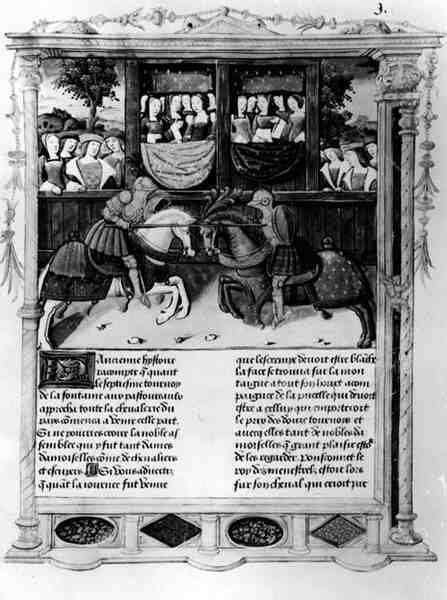 3.
Ancienne hystoire
racompte q̃ quant
le septiesme tournoy
de la fontaine aux pastoureaulx
approcha toute la chevalerie du
pays cõmensa a venir celle part.
Si ne pourres croire la noble as
semblee qui y fut tant dames
damoiselles cõme de chevaliers
et escuiers. Si vous advertiz
q̃ quãt la iournee fut venue
que devoit estre
la face se trouva sur la mon
taigne a tout son hourt acom
paignee de la pucelle qui devoit
estre a celluy qui emporteroit
le pris des douze tournois et
avecq elles tant de nobles da
moiselles q̃ grant plaisir
de les regarder. le
roy des menestrelz estoit lors
sur son cheval qui crioit sur